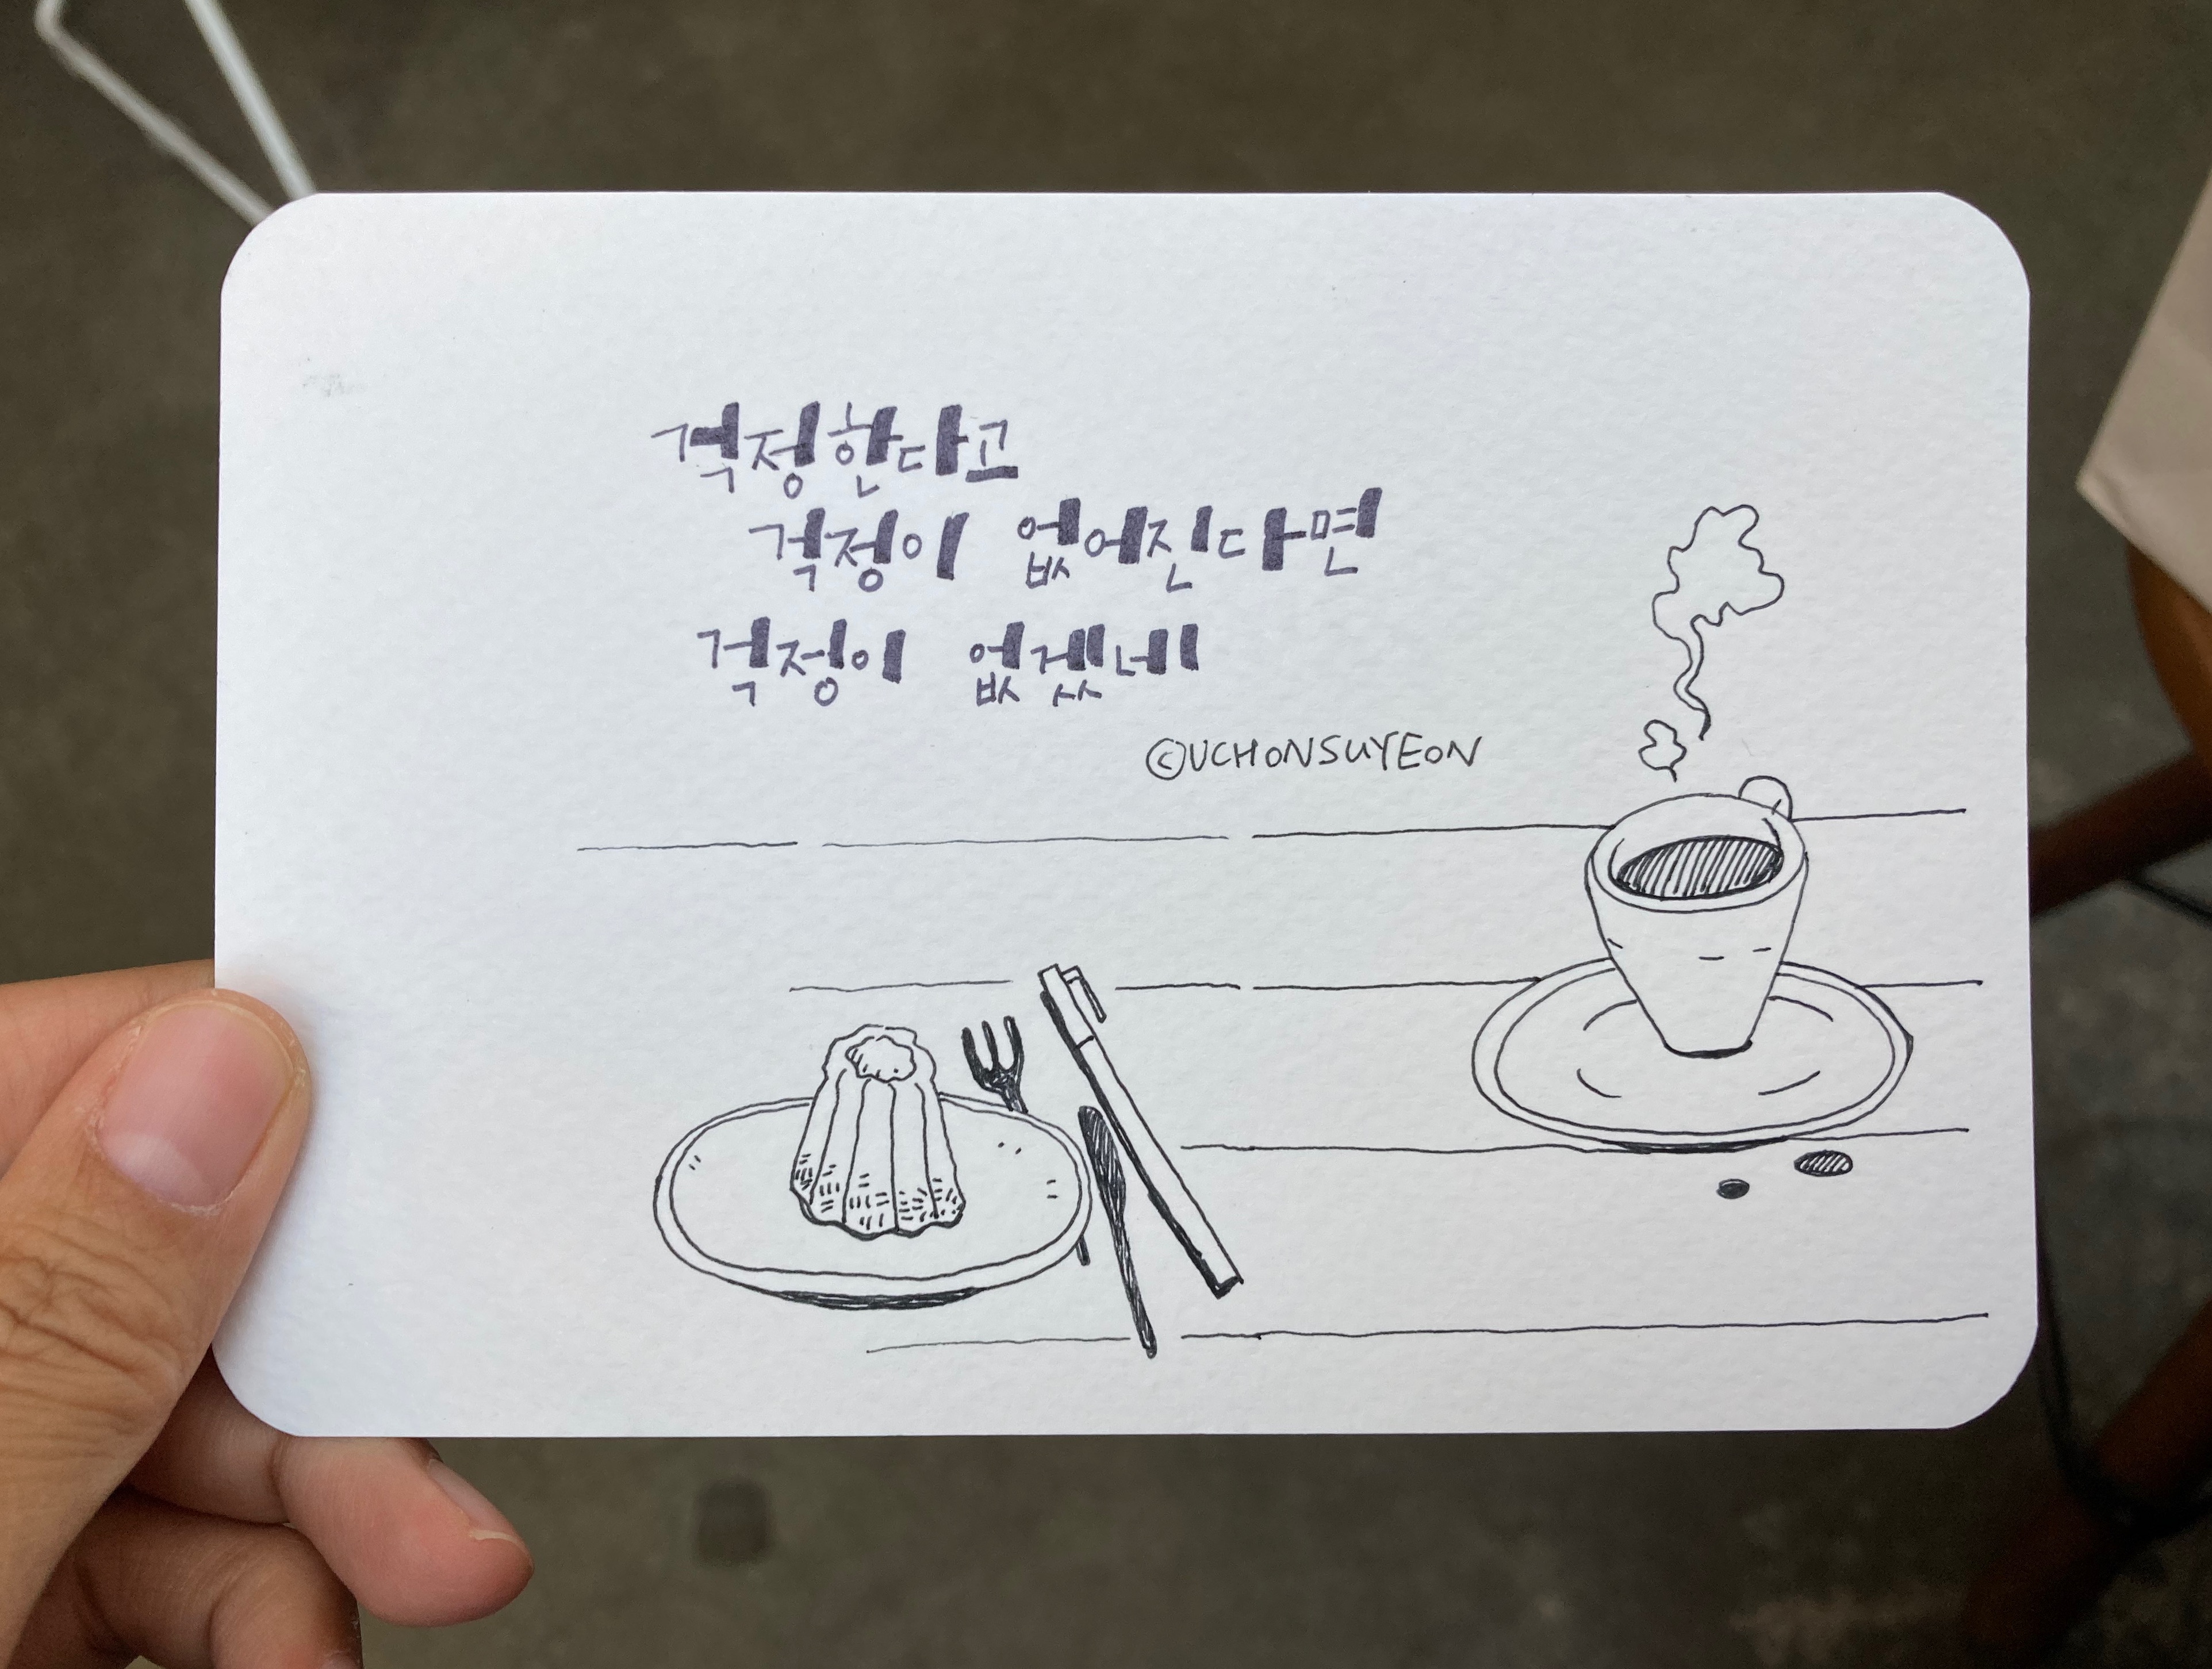 걱정한다고
걱정이 없어진다면
걱정이 없겠네
©UCHONSUYEON